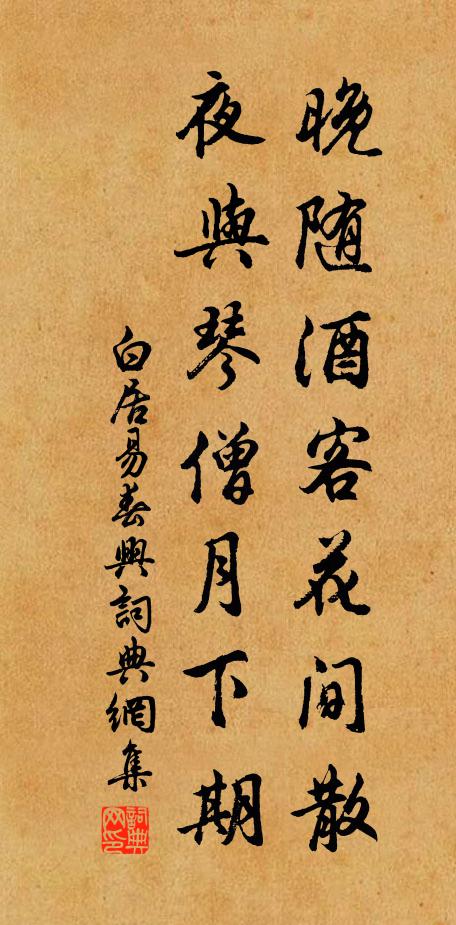 晚随酒客花间散
夜与琴僧月下期
白居易春興詞典網集
詞典网印